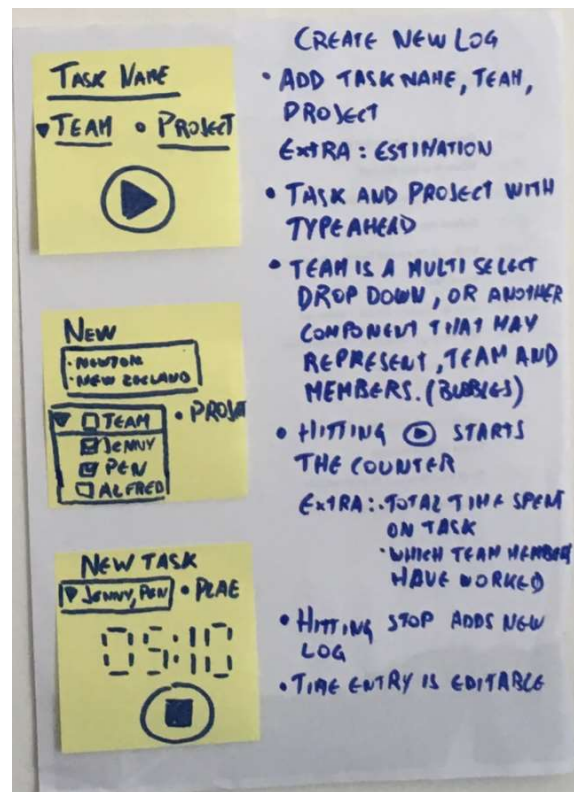 TASK NAME
TEAM • PROJECT
NEW
• NEWTON
• NEW ZEELAND
TEAM • PROJET
JENNY
PEN
ALFRED
NEW TASK
JENNY, PEN • PLAE
05:10
CREATE NEW LOG
• ADD TASK NAME, TEAM,
PROJECT
EXTRA: ESTIMATION
• TASK AND PROJECT WITH
TYPE AHEAD
• TEAM IS A MULTI SELECT
DROP DOWN, OR ANOTHER
COMPONENT THAT MAY
REPRESENT, TEAM AND
MEMBERS. (BUBBLES)
• HITTING STARTS
THE COUNTER
EXTRA: • TOTAL TIME SPENT
ON TASK
• WHICH TEAM MEMBER
HAVE WORKED
• HITTING STOP ADDS NEW
LOG
• TIME ENTRY IS EDITABLE